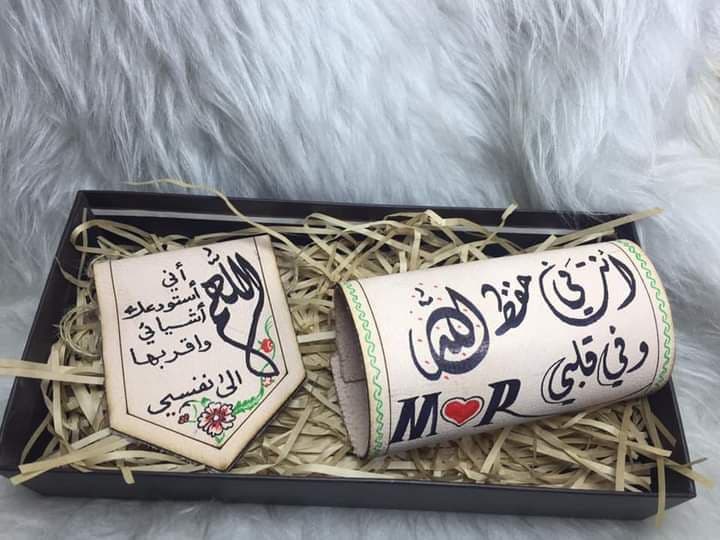 اللهم
أني
أستودعك
أشيائي
واقربها
الى نفسي
أنت في حفظ الله
وفي قلبي
M R